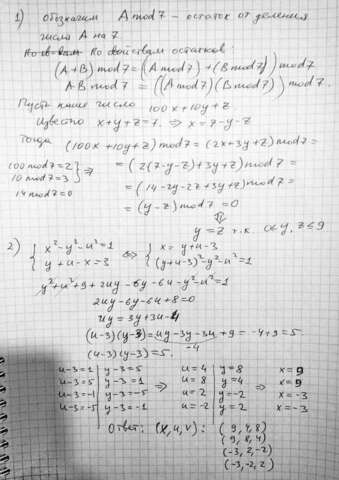 1) Обозначим A mod 7 – остаток от деления
числа A на 7
По свойствам остатков:
(A+B) mod 7 = ((A mod 7) + (B mod 7)) mod 7
AB mod 7 = ((A mod 7)(B mod 7)) mod 7.
Пусть наше число 100x+10y+z
Известно x+y+z=7. ⇒ x=7-y-z
Тогда (100x+10y+z) mod 7 = (2x+3y+z) mod 7 =
100 mod 7 = 2
10 mod 7 = 3
14 mod 7 = 0
} ⇒
= (2(7-y-z)+3y+z) mod 7 =
= (14-2y-2z+3y+z) mod 7 =
= (y-z) mod 7 = 0
⇕
y=z т.к.
y, z ≤ 9
2) { x²-y²-u²=1 ⇔ { x = y+u-3
y+u-x=3 (y+u-3)²-y²-u²=1
y²+u²+9+2uy-6y-6u-y²-u²=1
2uy-6y-6u+8=0
uy=3y+3u-4
(u-3)(y-3)=uy-3y-3u+9=-4+9=5.
-4
(u-3)(y-3)=5.
u-3=1 | y-3=5 u=4 | y=8 x=9
u-3=5 | y-3=1 ⇒ u=8 | y=4 ⇒ x=9
u-3=-1 | y-3=-5 u=2 | y=-2 x=-3
u-3=-5 | y-3=-1 u=-2 | y=2 x=-3
Ответ: (x,u,v): (9,4,8)
(9,8,4)
(-3,2,-2)
(-3,-2,2)